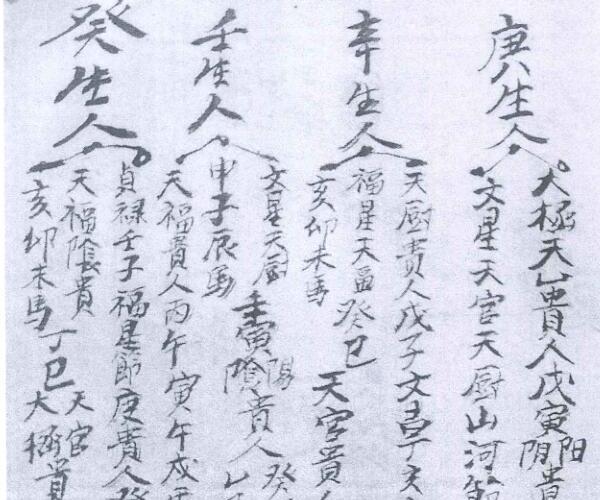 庚生人
太極天乙貴人戊寅陽
阴貴
文星天官天厨山河
辛生人
天厨貴人戊子文昌
福星天福癸巳
亥卯未馬
天官貴人
壬生人
文星天厨
申子辰馬
壬寅陽
陰貴人
天福貴人丙午寅午戌馬
癸生人
貞禄壬子福星節庚貴人癸
天福陰貴
亥卯未馬丁巳天官
太極貴